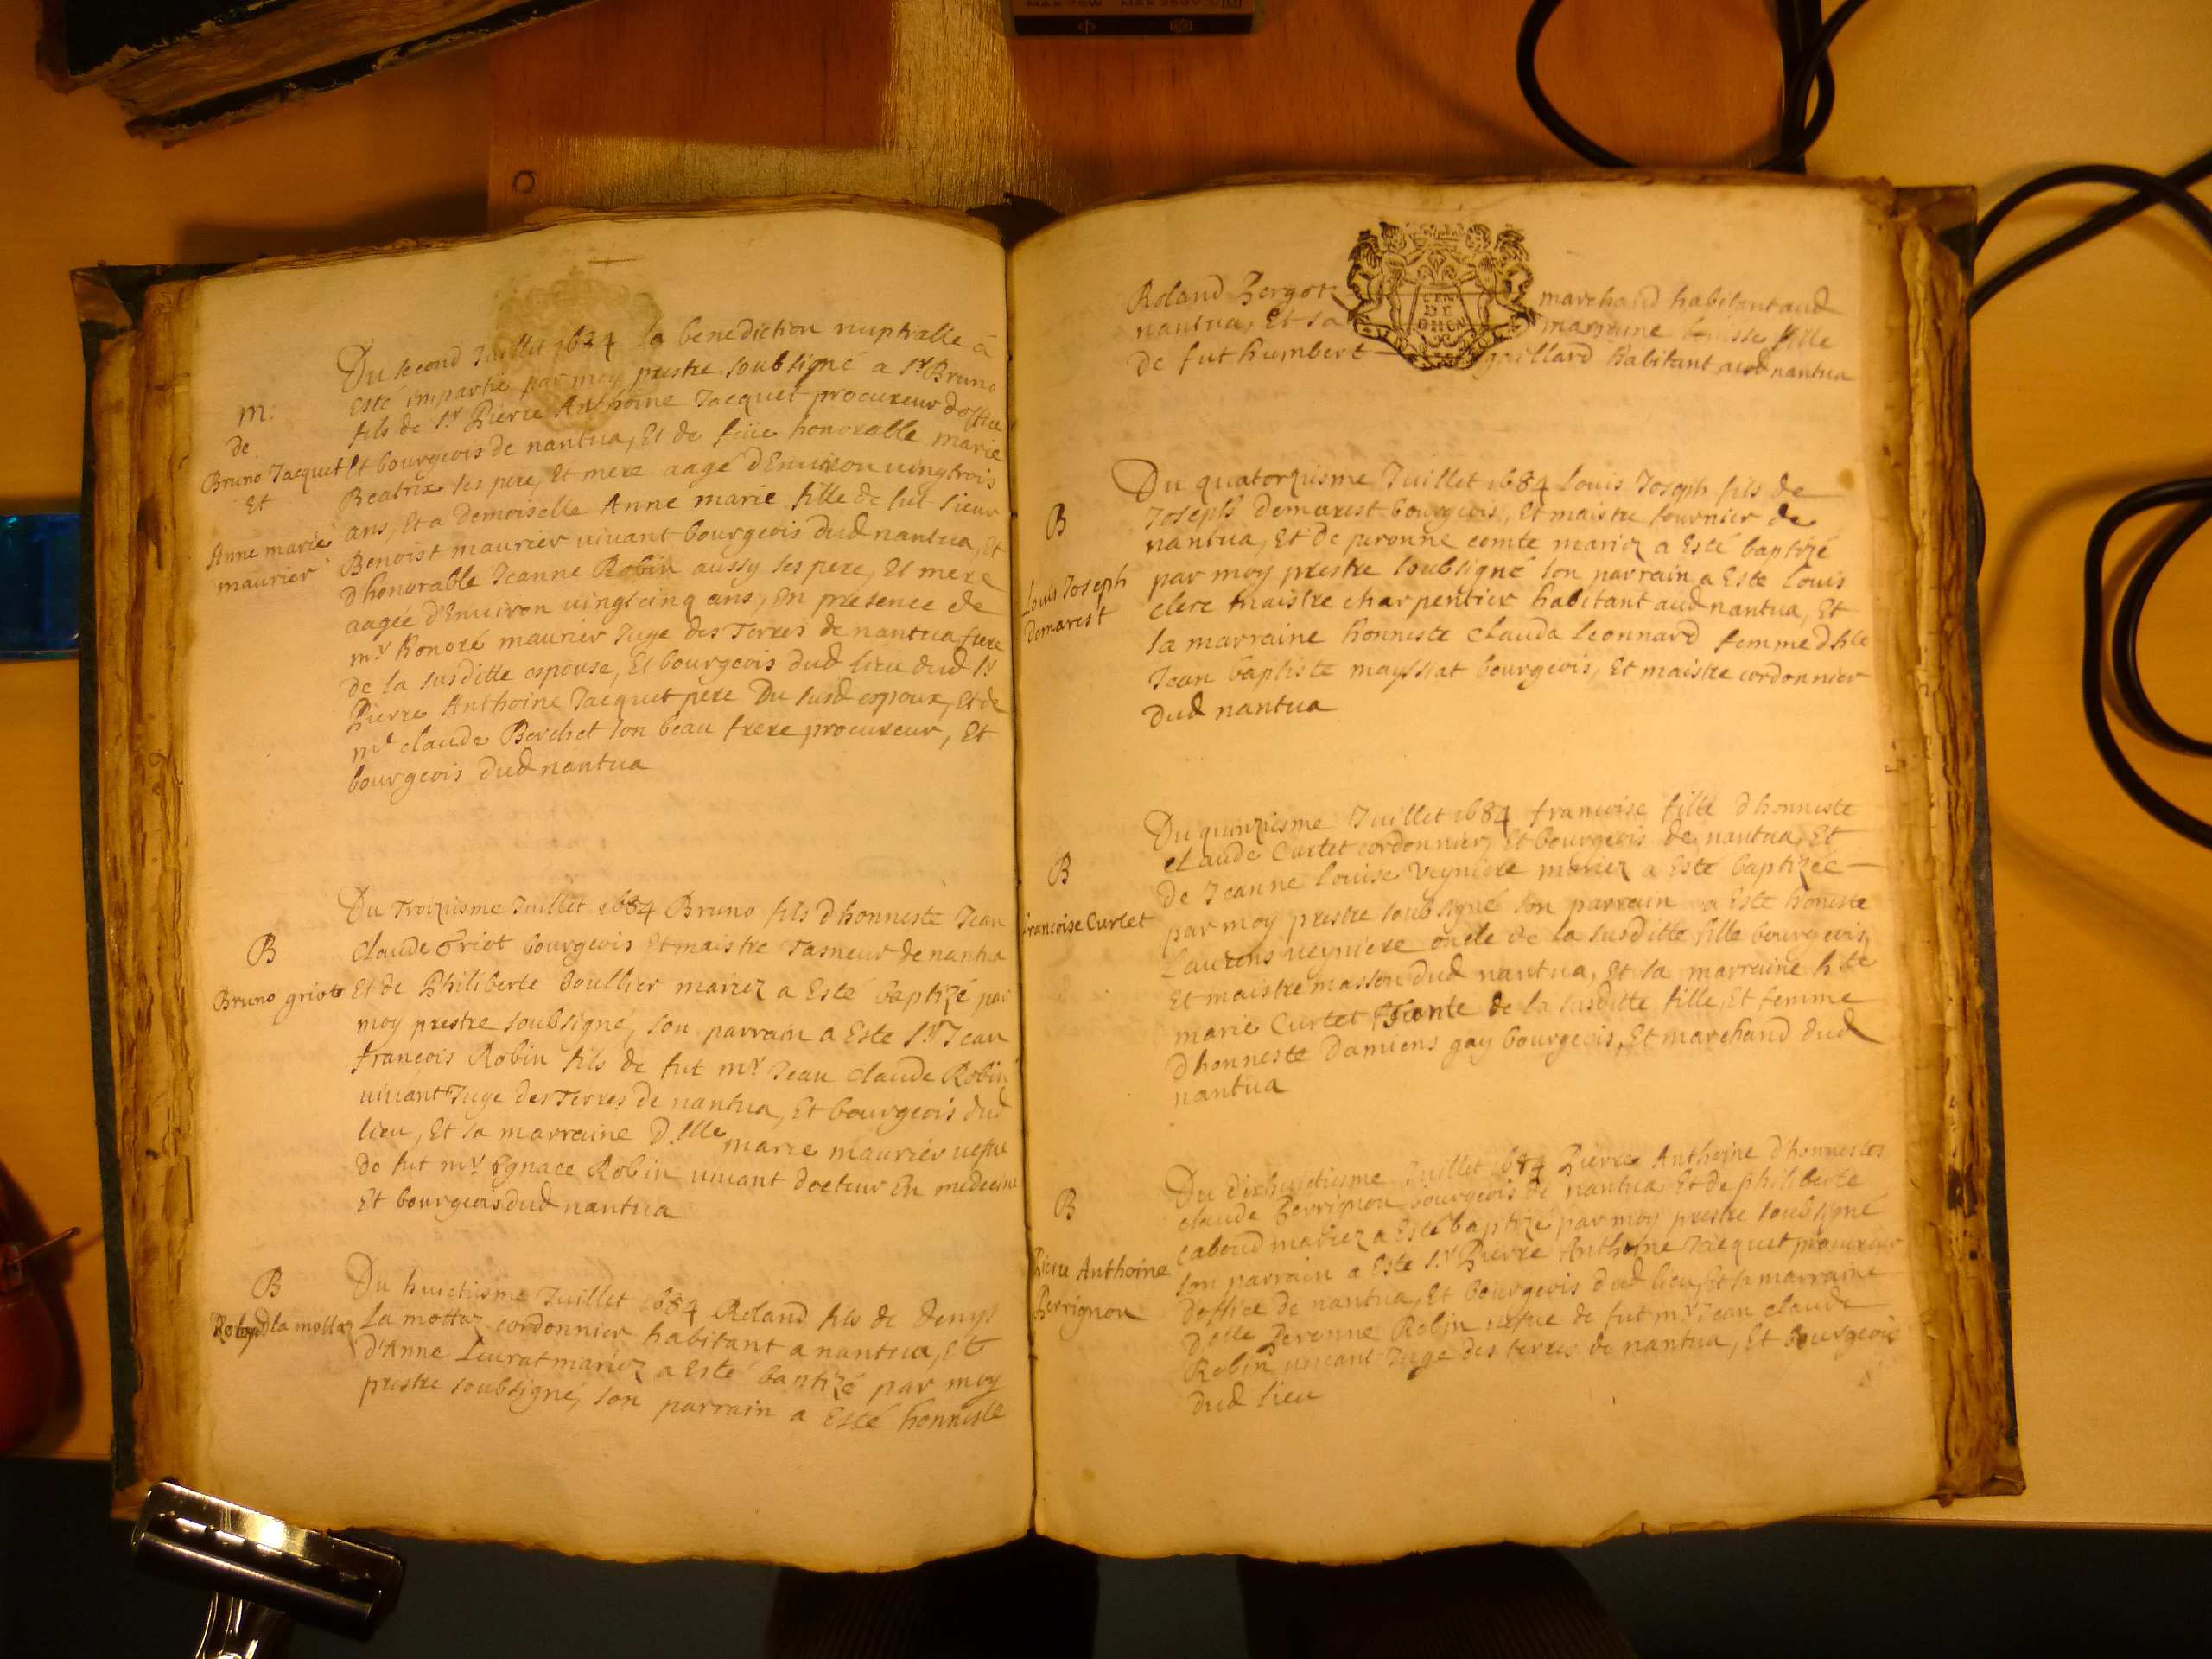 Du second Juillet 1684 la benediction nuptialle à
esté impartie par moy prestre soubsigné a Sr Bruno
fils de Sr Pierre Anthoine Jacquet procureur doffice
Et bourgeois de nantua, Et de feüe honorable marie
Beatrix ses pere, Et mere aagé d'Environ uingtrois
ans, Et a Demoiselle Anne marie fille de fut sieur
Benoist maurier uiuant bourgeois dud nantua, Et
dhonorable Jeanne Robin aussy ses pere, Et mere
aagée d'Enuiron uingtcinq ans, En presence de
mr honoré maurier Juge des Terres de nantua frere
de la susditte espouse, Et bourgeois dud lieu dud Sr
Pierre Anthoine Jacquet pere Du susd espoux, Et de
mr claude Berchet son beau frere procureur, Et
bourgeois dud nantua
m:
de
Bruno Jacquet
Et
Anne marie
maurier
Du Troiziesme Juillet 1684 Bruno fils dhonneste Jean
Claude Griot bourgeois Et maistre Tasneur de nantua
Et de Philiberte boullier mariez a Esté baptizé par
moy prestre soubsigné, son parrain a Este Sr Jean
francois Robin fils de fut mr Jean claude Robin
uiuant Juge des Terres de nantua, Et bourgeois dud
lieu, Et sa marraine D.lle marie maurier uefue
de fut mr Ignace Robin uiuant docteur En medecine
Et bourgeois dud nantua
B
Bruno griot
Du huictiesme Juillet 1684 Roland fils de denys
La mottaz cordonnier habitant a nantua, Et
d'Anne Leurat mariez a Esté baptizé par moy
prestre soubsigné, son parrain a Esté honneste
B
Roland la mottaz
Roland Bergot marchand habitant aud
nantua, Et sa marraine fille
de fut humbert gaillard habitant aud nantua
GEN
DE
DHON
Du quatorziesme Juillet 1684 Louis Joseph fils de
Joseph demarest bourgeois, Et maistre fournier de
nantua, Et de peronne comte mariez a Esté baptizé
par moy prestre soubsigné son parrain a Este Louis
clerc maistre charpentier habitant aud nantua, Et
sa marraine honneste clauda leonnard femme dhle
Jean baptiste mayssiat bourgeois, Et maistre cordonnier
dud nantua
B
Louis Joseph
Demarest
Du quinziesme Juillet 1684 francoise fille dhonneste
claude Curtet cordonnier, Et bourgeois de nantua, Et
de Jeanne Louise Veyniere mariez a Esté baptizée
par moy prestre soubsigné son parrain a Esté honeste
Laurens ueyniere oncle de la susditte fille bourgeois,
Et maistre masson dud nantua, Et sa marraine hte
marie Curtet Tante de la susditte fille, Et femme
dhonneste Damiens gay bourgeois, Et marchand dud
nantua
B
francoise Curtet
Du dixhuictiesme Juillet 1684 Pierre Anthoine dhonnestes
claude Perrignon bourgeois de nantua, Et de philiberte
caboud mariez a Esté baptizé par moy prestre soubsigné
son parrain a Este Sr Pierre Anthoine Jacquet procureur
doffice de nantua, Et bourgeois dud lieu, Et sa marraine
Delle Peronne Robin uefue de fut mr Jean claude
Robin uiuant Juge des terres de nantua, Et bourgeois
dud lieu
B
Pierre Anthoine
Perrignon